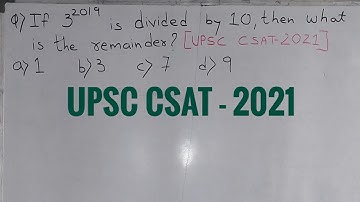 Q) If 3^2019 is divided by 10, then what
is the remainder? [UPSC CSAT-2021]
a) 1 b) 3 c) 7 d) 9
UPSC CSAT - 2021